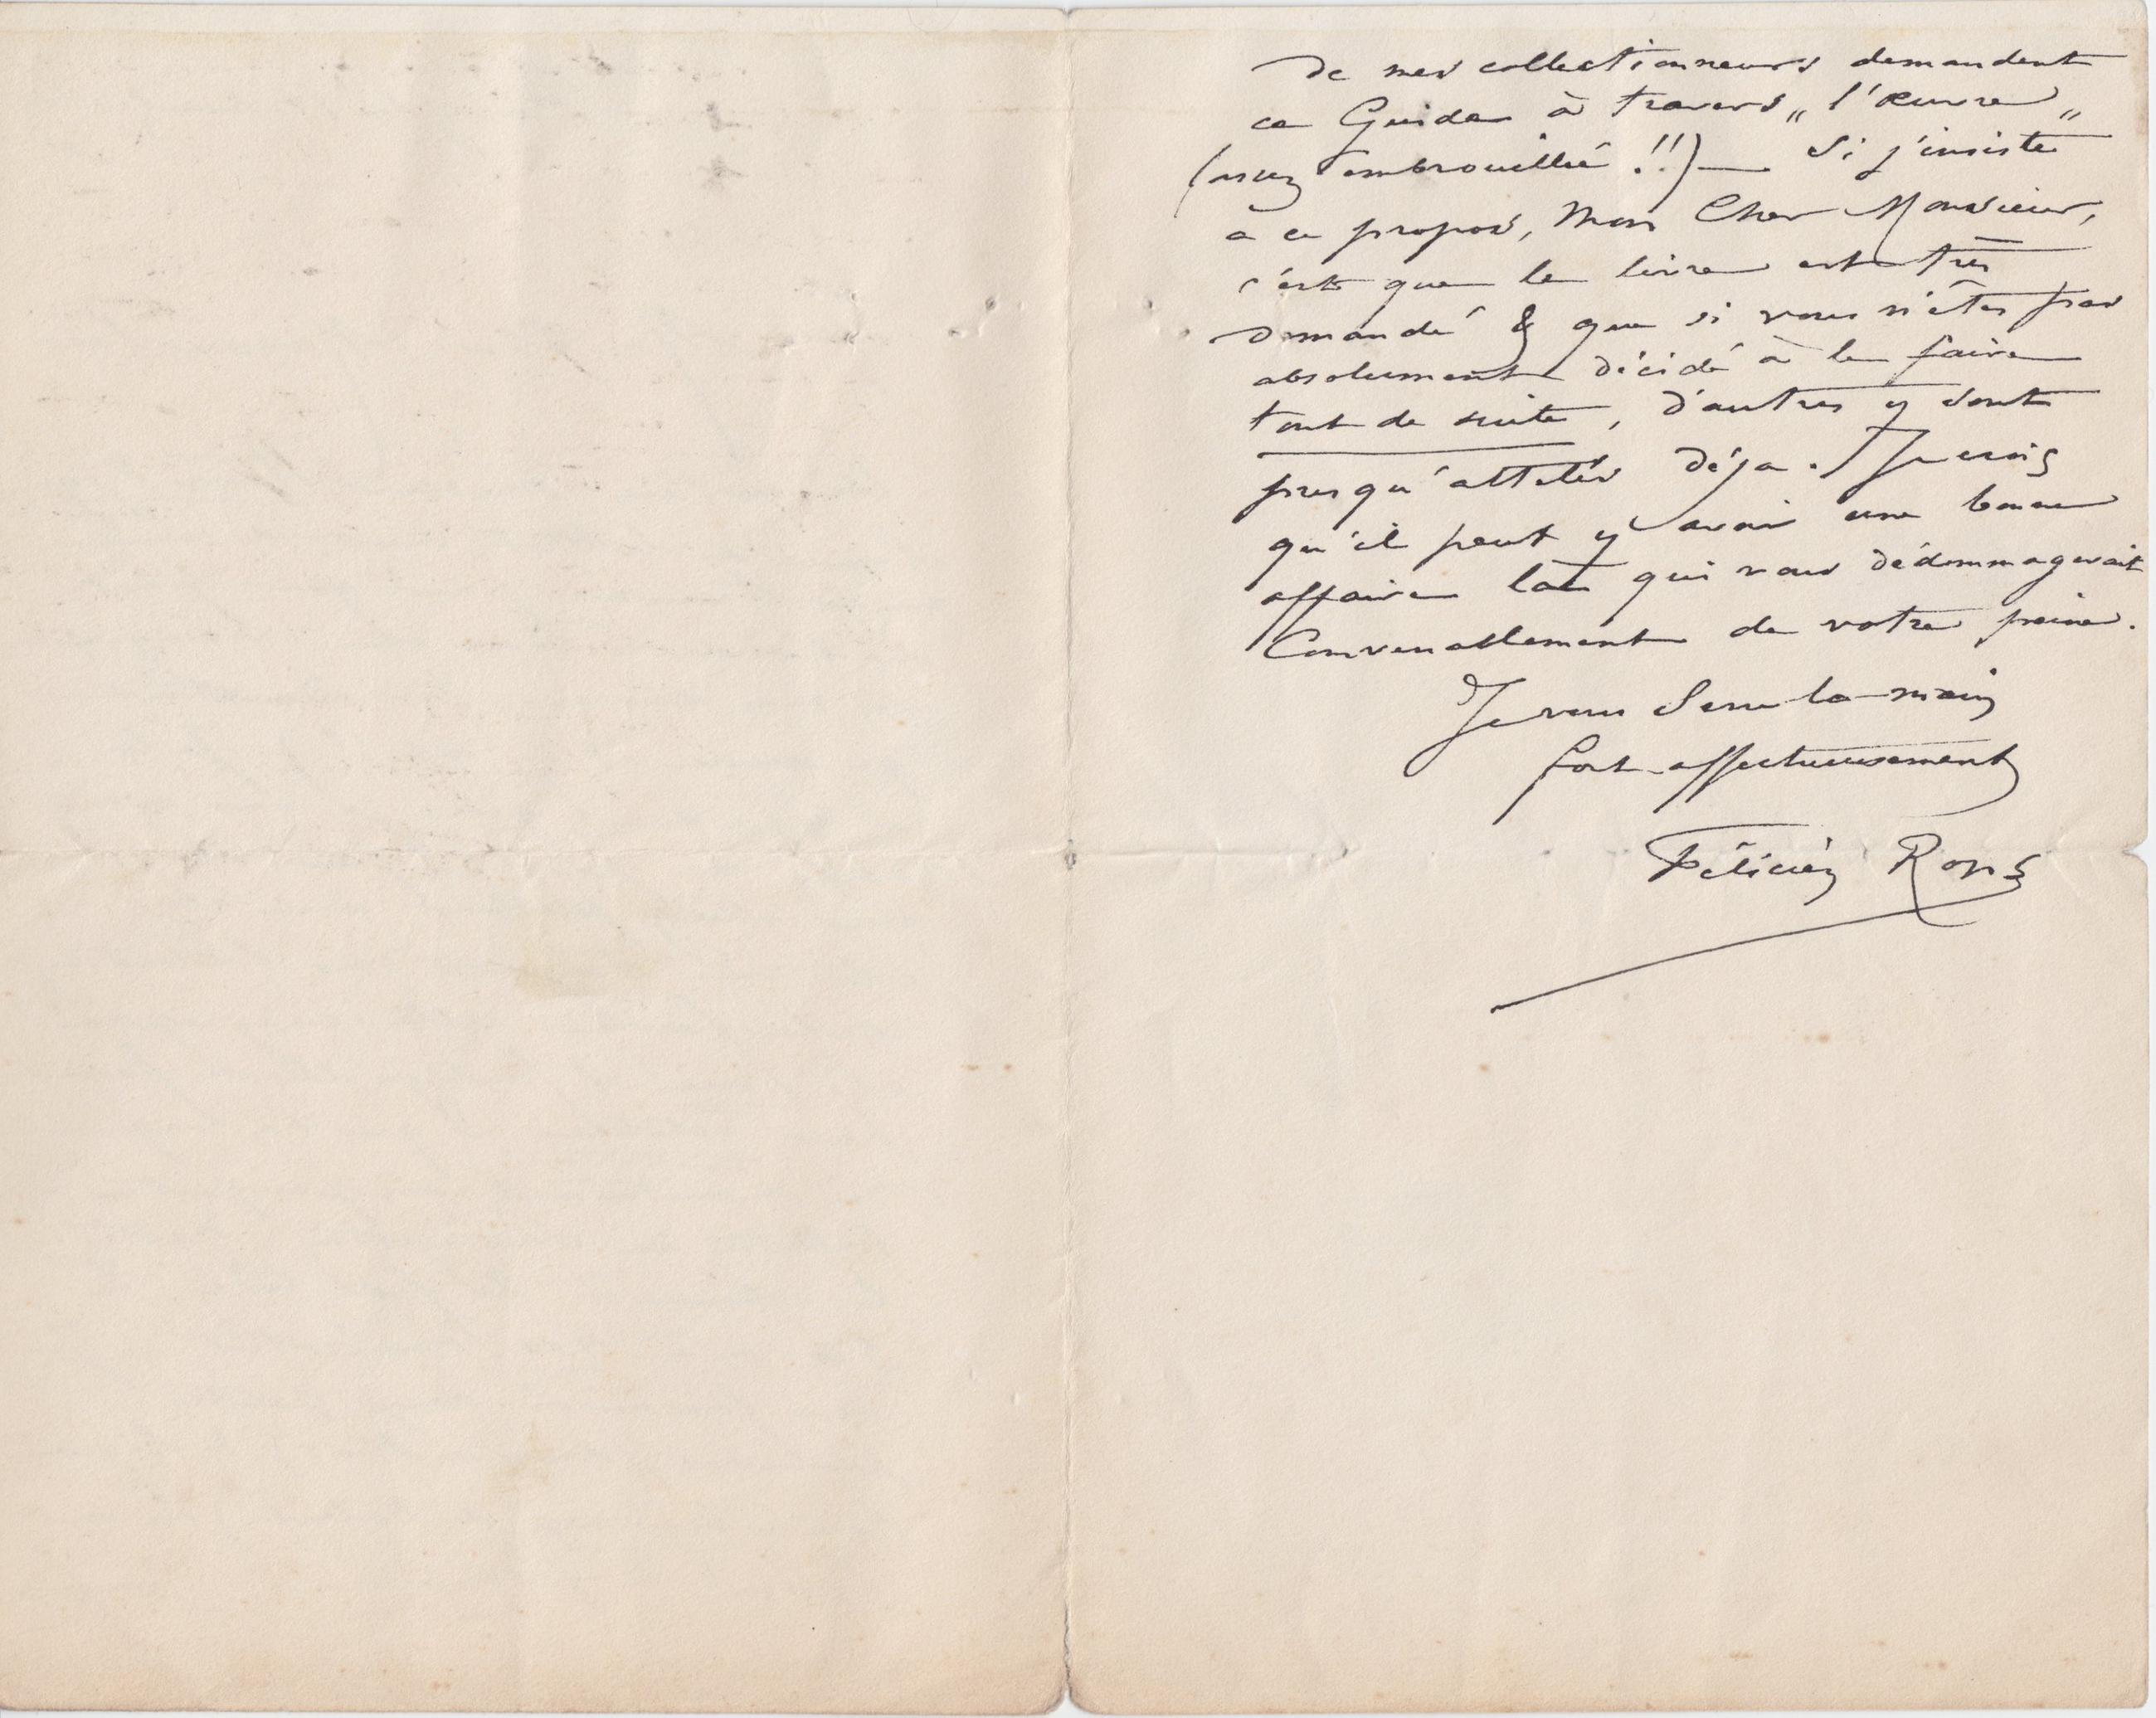 de mes collectionneurs demandent
ce Guide à travers „ l'œuvre „
(assez embrouillé !!) — Si j'insiste
à ce propos, Mon Cher Monsieur,
c'est que le livre est très
demandé & que si vous n'êtes pas
absolument décidé à le faire
tout de suite, d'autres y sont
presqu'attelés déja. Je crois
qu'il peut y avoir une bonne
affaire là qui vous dédommagerait
Convenablement de votre peine.
Je vous Serre la main
fort affectueusement
Félicien Rops